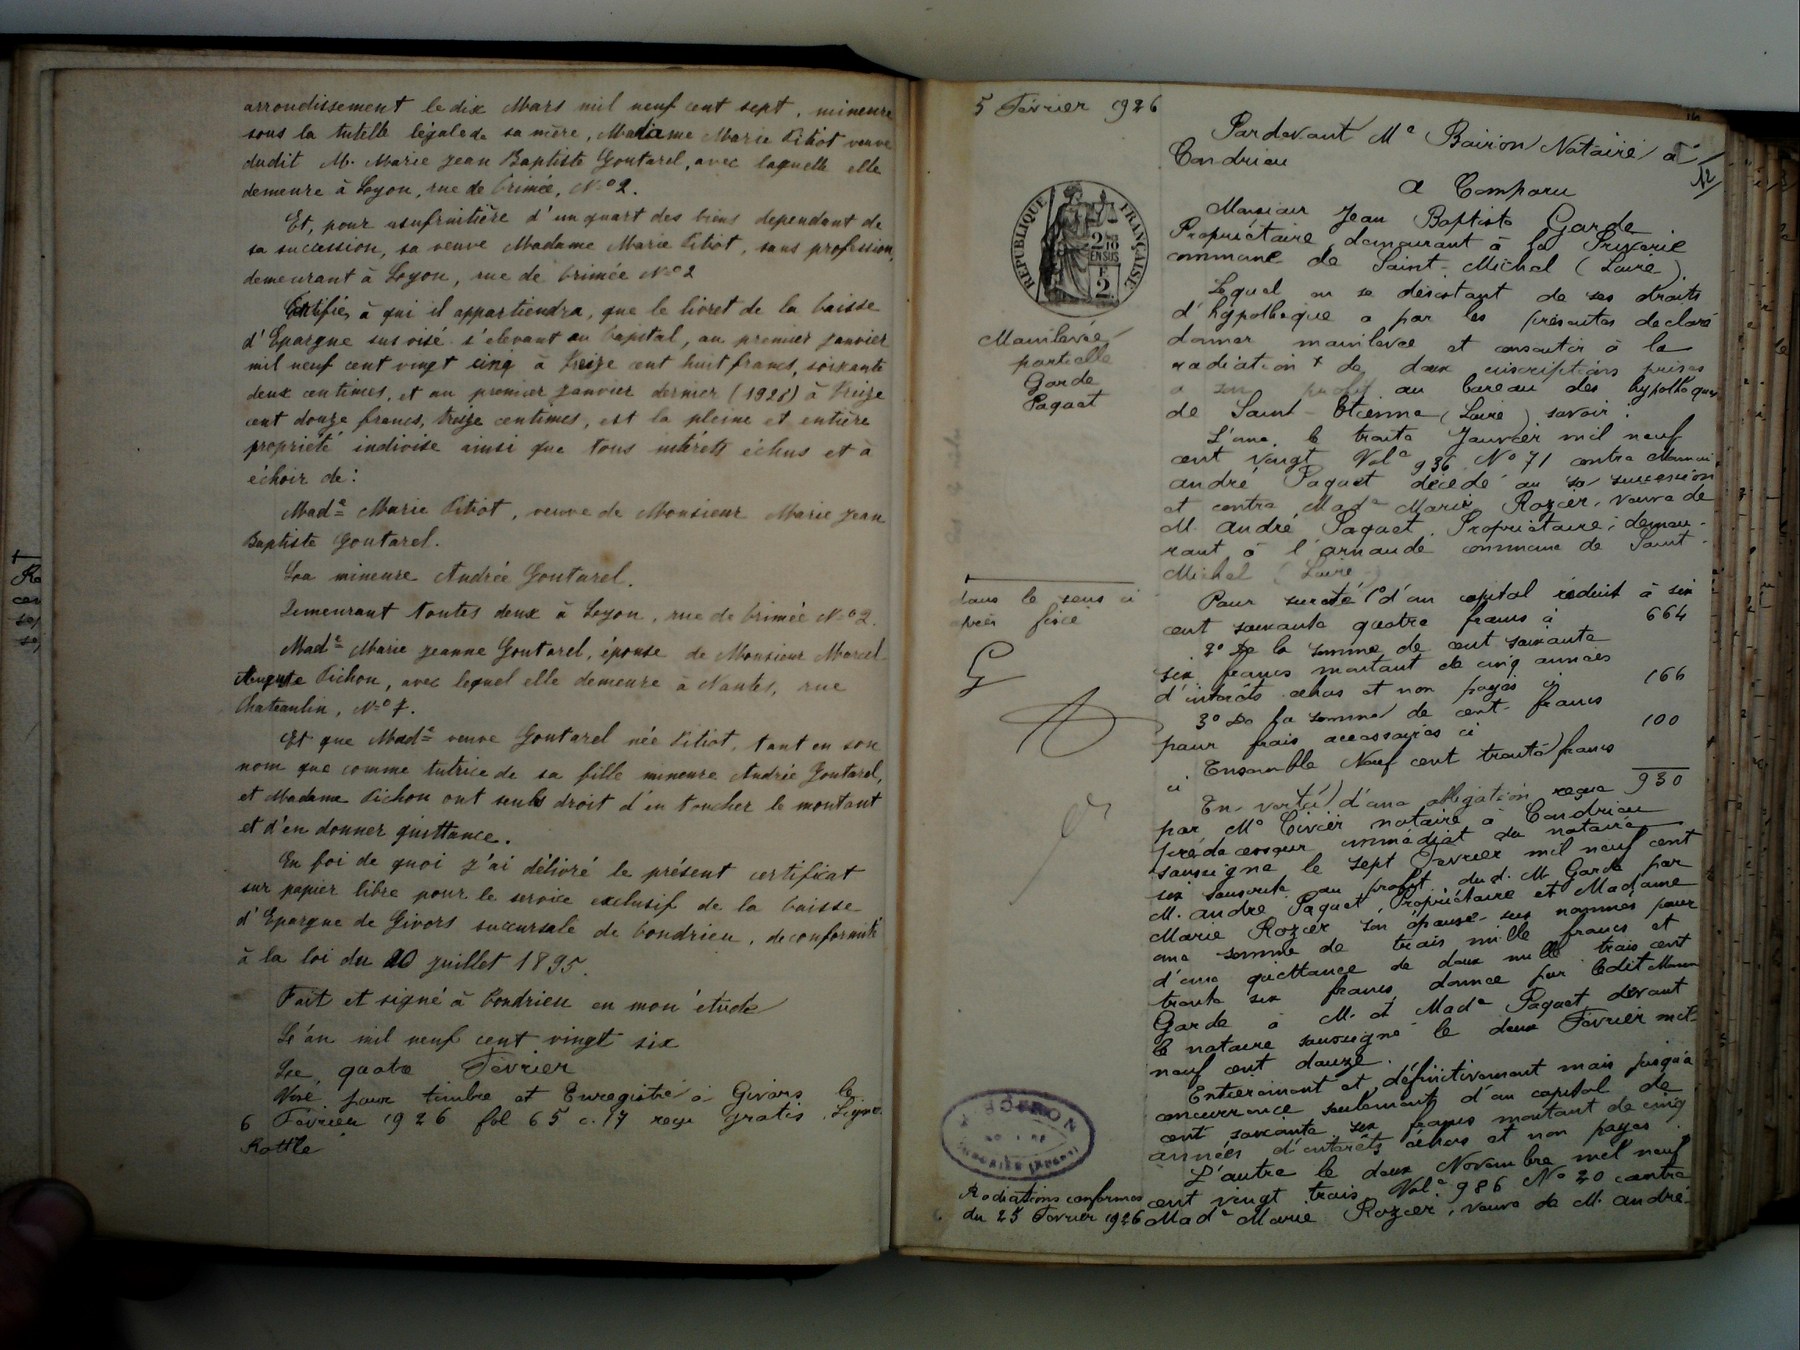 arrondissement le dix Mars mil neuf cent sept, mineure
sous la tutelle légale de sa mère, Madame Marie Pitiot veuve
dudit M. Marie Jean Baptiste Goutarel, avec laquelle elle
demeure à Lyon, rue de Crimée, No 2.
Et, pour usufruitière d'un quart des biens dépendant de
sa succession, sa veuve Madame Marie Pitiot, sans profession,
demeurant à Lyon, rue de Crimée No 2
Certifie, à qui il appartiendra, que le livret de la Caisse
d'Epargne sus visé s'élevant au Capital, au premier Janvier
mil neuf cent vingt cinq à treize cent huit francs, soixante
deux centimes, et au premier Janvier dernier (1926) à treize
cent douze francs, treize centimes, est la pleine et entière
propriété indivise ainsi que tous intérêts échus et à
échoir de:
Made Marie Pitiot, veuve de Monsieur Marie Jean
Baptiste Goutarel.
La mineure Andrée Goutarel.
Demeurant toutes deux à Lyon, rue de Crimée No 2.
Made Marie Jeanne Goutarel, épouse de Monsieur Marcel
Auguste Pichon, avec lequel elle demeure à Nantes, rue
Chateaulin, No 7.
Et que Made veuve Goutarel née Pitiot, tant en son
nom que comme tutrice de sa fille mineure Andrée Goutarel,
et Madame Pichon ont seuls droit d'en toucher le montant
et d'en donner quittance.
En foi de quoi j'ai délivré le présent certificat
sur papier libre pour le service exclusif de la Caisse
d'Epargne de Givors succursale de Condrieu, de conformité
à la loi du 20 Juillet 1895.
Fait et signé à Condrieu en mon étude
L'an mil neuf cent vingt six
Le quatre Février
Visé pour timbre et Enregistré à Givors le
6 Février 1926 fol 65 c. 17 reçu gratis. Signé
5 Février 1926
Pardevant Me Boiron Notaire à
Condrieu
12
A Comparu
RÉPUBLIQUE FRANÇAISE
2/10 EN SUS
2 F
Monsieur Jean Baptiste Garde
Propriétaire demeurant à la
commune de Saint-Michel (Loire).
Lequel en se désistant de ses droits
d'hypothèque a par les présentes déclaré
Mainlevée
partielle
Garde
Paquet
donner mainlevée et consentir à la
radiation + de deux inscriptions prises
à son profit au bureau des hypothèques
de Saint-Etienne (Loire) savoir:
L'une, le trente Janvier mil neuf
cent vingt Vole 936 No 71 contre Monsieur
André Paquet décédé ou sa succession
et contre Made Marie Rozier, veuve de
M. André Paquet, Propriétaire, demeu-
rant à l'arnaude commune de Saint-
Michel (Loire)
dans le sens ci
près fixé
G
Pour sureté 1o d'un capital réduit à six
cent soixante quatre francs ci 664
2o De la somme de cent soixante
six francs montant de cinq années
d'intérêts échus et non payés ci 166
3o De la somme de cent francs
pour frais accessoires ci 100
Ensemble Neuf cent trente francs
ci 930
En vertu d'une obligation reçue
par Me Civier notaire à Condrieu
prédécesseur immédiat du notaire
soussigné le sept Février mil neuf cent
six souscrite au profit du d. M. Garde par
M. André Paquet, Propriétaire et Madame
Marie Rozier son épouse sus nommés pour
une somme de trois mille francs et
d'une quittance de deux mille trois cent
trente six francs donnée par ledit Monsieur
Garde à M. et Made Paquet devant
le notaire soussigné le deux Février mil
neuf cent douze.
Entièrement et définitivement mais jusqu'à
concurrence seulement d'un capital de
cent soixante six francs montant de cinq
années d'intérêts échus et non payés.
L'autre le deux Novembre mil neuf
cent vingt trois, Vole 986 No 20 contre
Made Marie Rozier, veuve de M. André
BOIRON
Radiations conformes
du 25 Février 1926